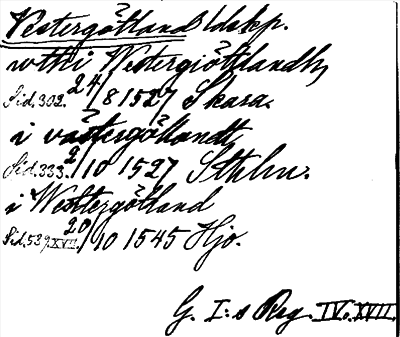 Västergötland ldskp.
wthi Westergiöttlandh,
Sid. 302. 24/8 1527 Skara.
i västergötlandt,
Sid. 333. 2/10 1527 Sthlm.
i Westtergötland
Sid. 539. XVII. 20/10 1545 Hjo.
G. I:s Reg. IV. XVII.